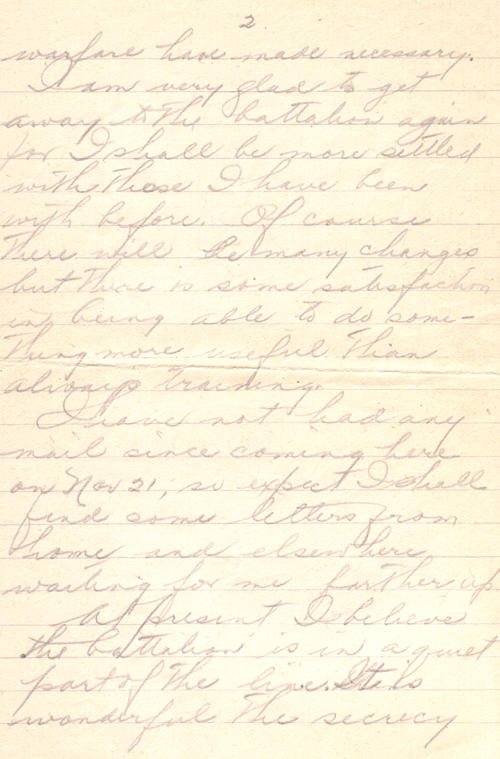 2
warfare have made necessary.
I am very glad to get
away to the battalion again
for I shall be more settled
with those I have been
with before. Of course
there will be many changes
but there is some satisfaction
in being able to do some-
thing more useful than
always training.
I have not had any
mail since coming here
on Nov 21, so expect I shall
find some letters from
home and elsewhere
waiting for me farther up
At present I believe
the battalion is in a quiet
part of the line. It is
wonderful the secrecy